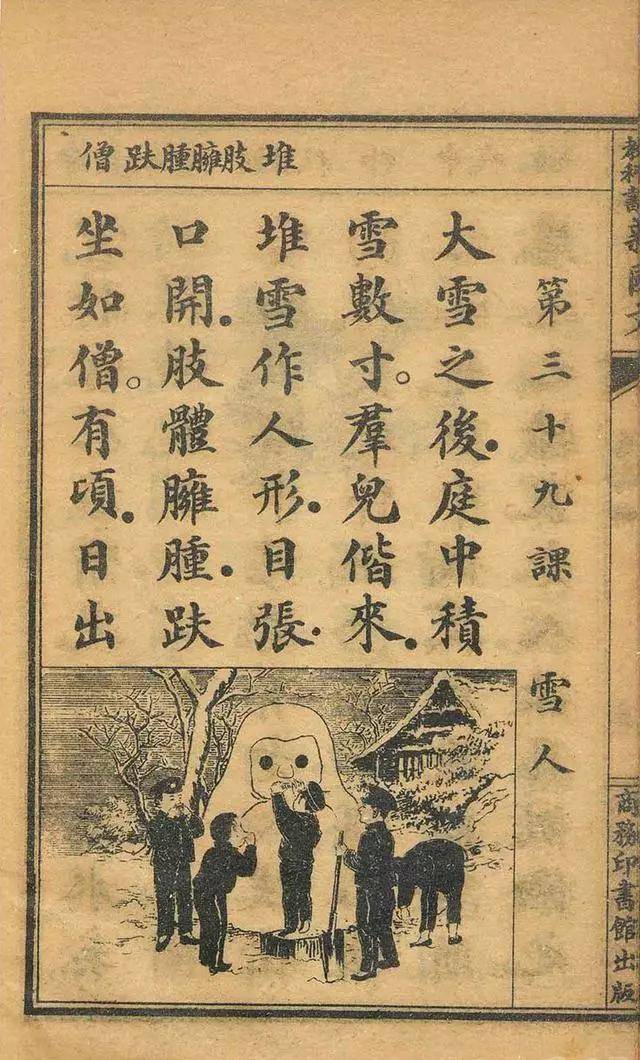 教科書新國文
商務印書館出版
第三十九課 雪人
堆肢臃腫趺僧
大雪之後．庭中積
雪數寸。羣兒偕來．
堆雪作人形．目張．
口開．肢體臃腫．趺
坐如僧。有頃．日出